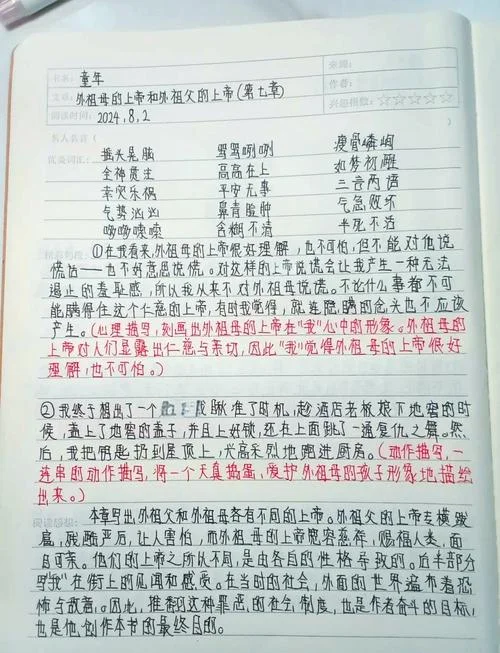 书名: 童年
来源:
文章: 外祖母的上帝和外祖父的上帝(第七章)
作者:
阅读时间: 2024.8.2
兴趣指数: ☆☆☆☆☆
名人名言(
优美词汇: 摇头晃脑 骂骂咧咧 瘦骨嶙峋
全神贯注 高高在上 如梦初醒
幸灾乐祸 平安无事 三言两语
气势汹汹 鼻青脸肿 气急败坏
啰啰嗦嗦 含糊不清 半死不活
①在我看来,外祖母的上帝很好理解,也不可怕,但不能对他说
谎话——也不好意思说谎。对这样的上帝说谎会让我产生一种无法
遏止的羞耻感,所以我从来不对外祖母说谎。不论什么事都不可
能瞒得住这个仁慈的上帝,有时我觉得,就连隐瞒的念头也不应该
产生。(心理描写,刻画出外祖母的上帝在"我"心中的形象。外祖母的
上帝对人们显露出仁慈与亲切,因此"我"觉得外祖母的上帝很好
理解,也不可怕。)
②我终于想出了一个 我瞅准了时机,趁酒店老板娘下地窖的时
候,盖上了地窖的盖子,并且上好锁,还在上面跳了一通复仇之舞。然
后,我把钥匙扔到屋顶上,兴高采烈地跑进厨房。(动作描写,
一连串的动作描写,将一个天真捣蛋,爱护外祖母的孩子形象地描绘
出来。)
阅读感想: 本章写出外祖父和外祖母各有不同的上帝。外祖父的上帝专横跋
扈,残酷严厉,让人害怕,而外祖母的上帝宽容慈祥,赐福人类,面
目可亲。他们的上帝之所以不同,是由各自的性格导致的。后半部分
写"我"在街上的见闻和感受。在当时的社会,外面的世界遍布着恐
怖与敌意。因此,推翻这种罪恶的社会制度,也是作者奋斗的目标,
也是他创作本书的最终目的。